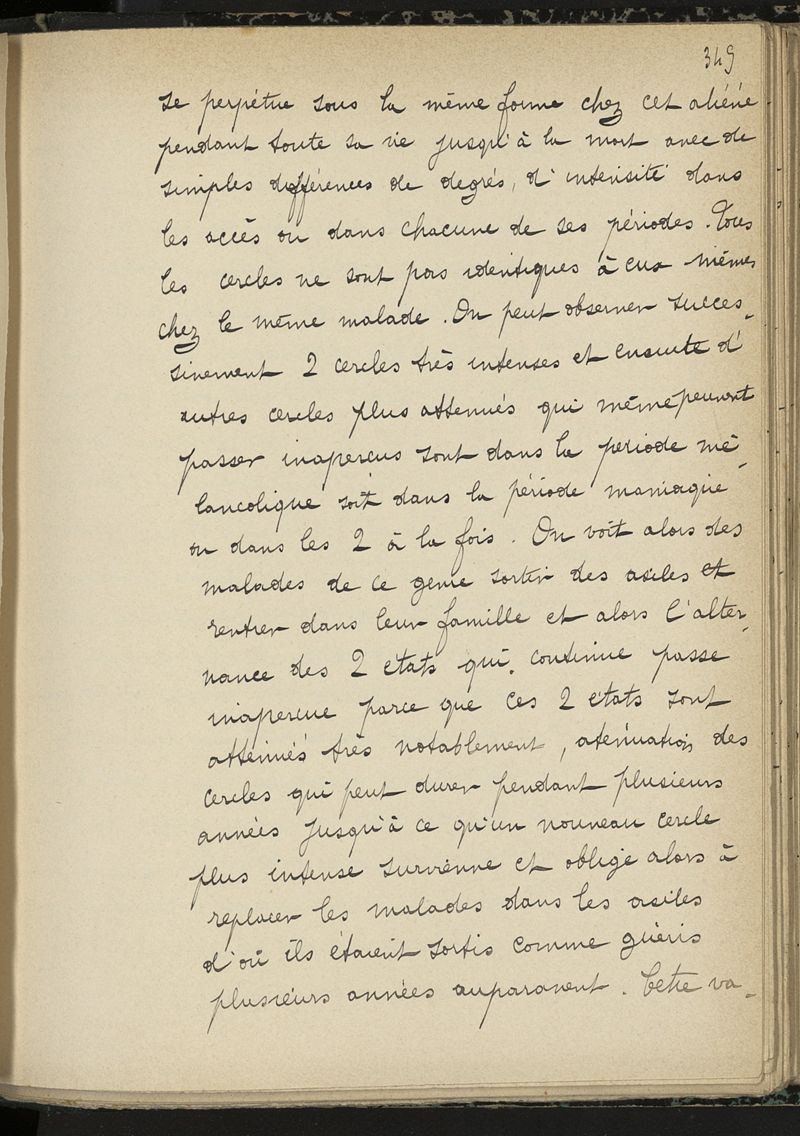 349
se perpétue sous la même forme chez cet aliéné
pendant toute sa vie jusqu'à la mort avec de
simples différences de degrés, d'intensité dans
les accès ou dans chacune de ses périodes. Tous
les cercles ne sont pas identiques à eux mêmes
chez le même malade. On peut observer succes-
sivement 2 cercles très intenses et ensuite d'
autres cercles plus attenués qui même peuvent
passer inaperçus sont dans la periode mé-
lancolique soit dans la période maniaque
ou dans les 2 à la fois. On voit alors des
malades de ce genre sortir des asiles et
rentrer dans leur famille et alors l'alter-
nance des 2 états qui continue passe
inaperçue parce que ces 2 états sont
attenués très notablement, atténuation des
cercles qui peut durer pendant plusieurs
années jusqu'à ce qu'un nouveau cercle
plus intense survienne et oblige alors à
replacer les malades dans les asiles
d'où ils étaient sortis comme guéris
plusieurs années auparavent. Cette va-